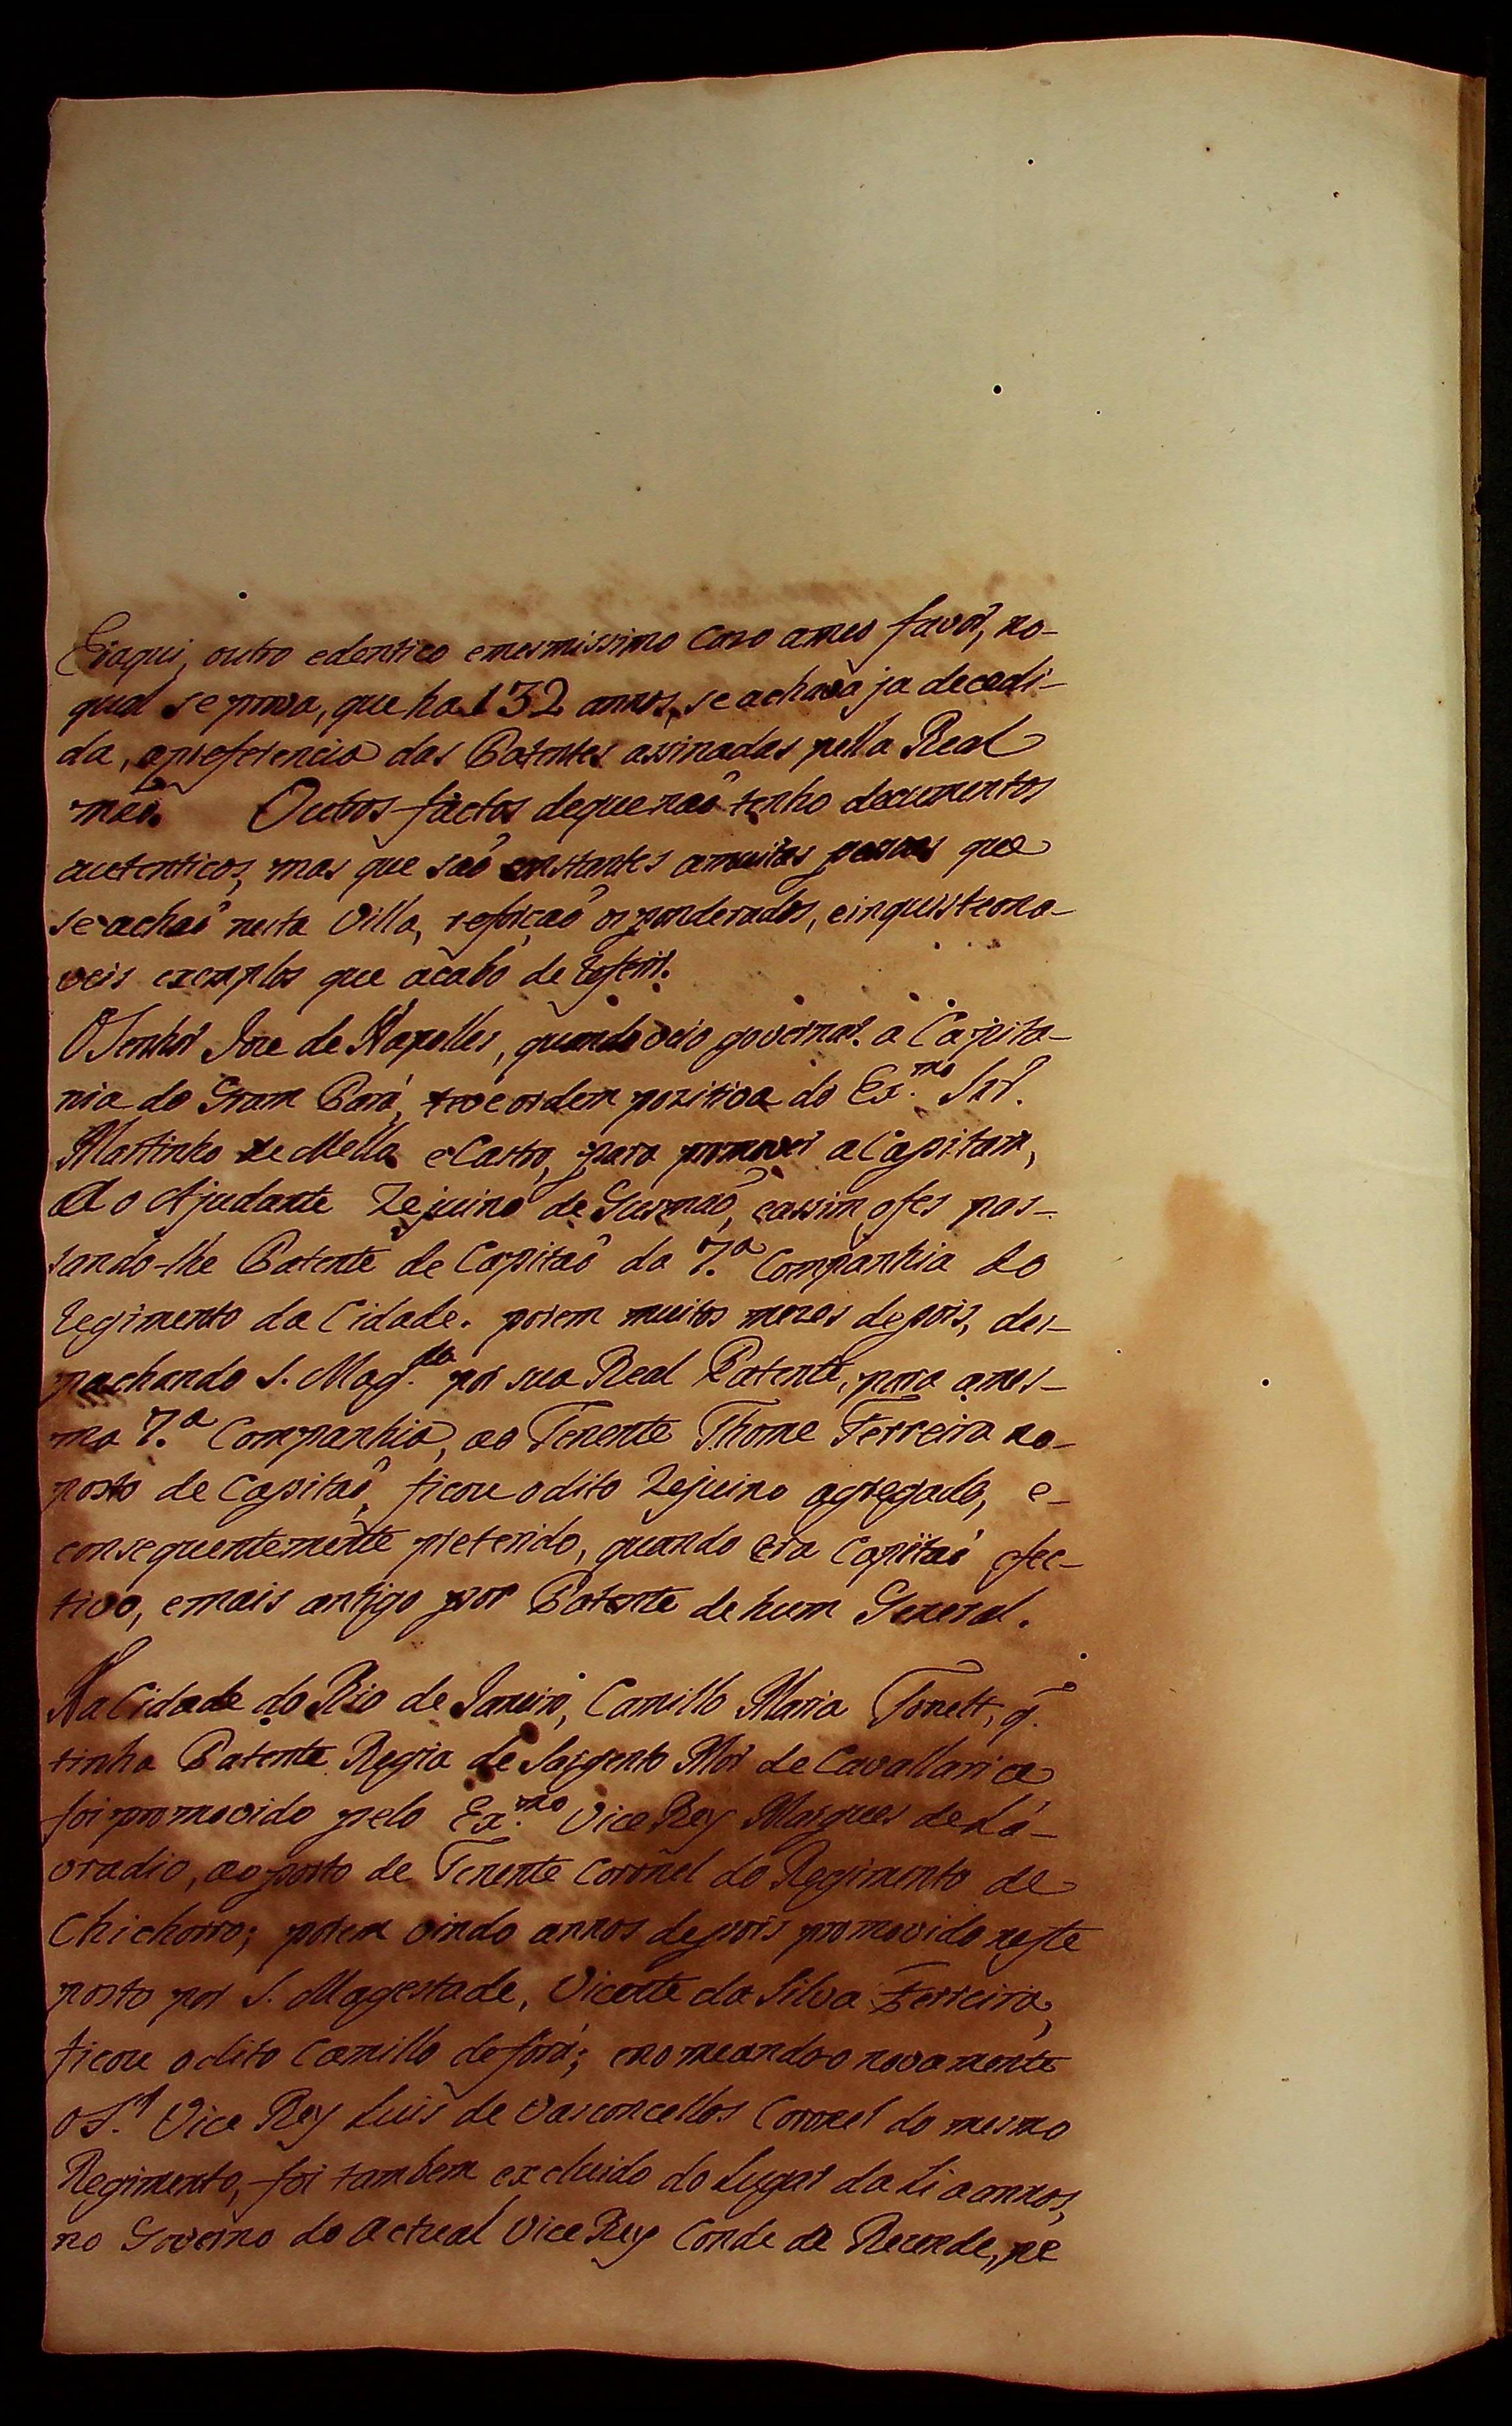 Eisaqui, outro edentico emesmissimo caso ameo favor, no-
qual se prova, que ha 132 annos, se achava ja decedi-
da, apreferencia das Patentes assinadas pella Real
maõ. Outros factos dequenaõ tenho documentos
autenticos, mas que saõ constantes amuitas pessoas que
se achaõ nesta Villa, reforçaõ os ponderados, einquistiona-
veis exemplos que acabo de referir.
O Senhor Joze de Napolles, quando veio governar a Capita-
nia do Gram Pará, teve ordem pozitiva do Ex.mo Snr.
Martinho de Mello e Castro, para promover a Capitam,
Ao Ajudante Zejuino de Gusmaõ, eassim ofes pas-
sando-lhe Patente de Capitaõ da 7.a Companhia do
Regimento da Cidade. porem muitos mezes depois, des-
pachando S. Mag.de por sua Real Patente, para ames-
ma 7.a Companhia, ao Tenente Thome Ferreira no-
posto de Capitaõ, ficou odito Zejuino agregado, e-
consequentemente preterido, quando era Capitaõ efec-
tivo, emais antigo por Patente de hum General.
Na Cidade do Rio de Janeiro, Camillo Maria Tonett, q.
tinha Patente Regia de Sargento Mór de Cavallaria
foi promovido pelo Ex.mo Vice Rey Marques de La-
vradio, ao posto de Tenente Coronel do Regimento de
Chichorro; porem vindo annos depois promovido neste
posto por S. Magestade, Vicente da Silva Ferreira,
ficou odito Camillo defora; enomeando-o novamente
o S.r Vice Rey Luis de Vasconcellos Coronel do mesmo
Regimento, foi tambem excluido do Lugar da li a annos,
no Governo do actual Vice Rey Conde de Rezende, pe